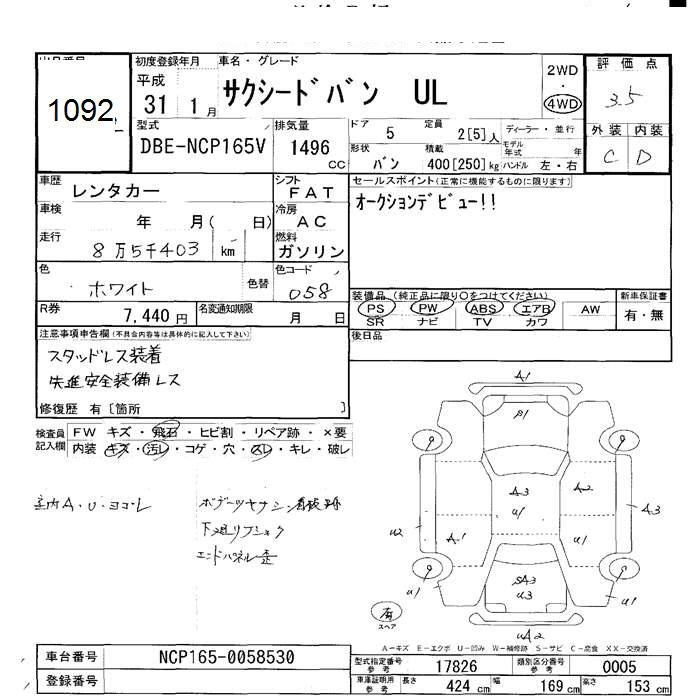 1092
初度登録年月
平成
31 1月
車名・グレード
サクシードバン UL
2WD
・
4WD
評価点
3.5
外装 内装
C D
型式
DBE-NCP165V
排気量
1496 cc
ドア
5
定員
2[5]人
ディーラー・並行
モデル年式 年
形状
バン
積載
400[250]kg
ハンドル 左・右
車歴
レンタカー
シフト
FAT
セールスポイント(正常に機能するものに限ります)
オークションデビュー!!
車検
年 月( 日)
冷房
AC
走行
8万5千403 km
燃料
ガソリン
色
ホワイト
色替
色コード
058
R券
7,440円
名変通知期限
月 日
装備品(純正品に限り○をつけてください)
PS PW ABS エアB AW
SR ナビ TV カワ
新車保証書
有・無
後日品
注意事項申告欄(不具合内容等は具体的に記入して下さい)
スタッドレス装着
先進安全装備レス
修復歴 有〔箇所 〕
検査員記入欄
FW キズ・飛石・ヒビ割・リペア跡・×要
内装 キズ・汚レ・コゲ・穴・スレ・キレ・破レ
室内A・U・ヨゴレ
ボデーツヤナシ 看板跡
下廻リフショク
エンドパネル歪
A1
A3
U1
U2
A1
U1
A3
SA3
U3
U1
U1
UA2
有
スペア
A−キズ E−エクボ U−凹み W−補修跡 S−サビ C−腐食 XX−交換済
車台番号
NCP165-0058530
登録番号
型式指定番号
参考
17826
類別区分番号
参考
0005
車庫証明用
参考
長さ
424 cm
幅
169 cm
高さ
153 cm